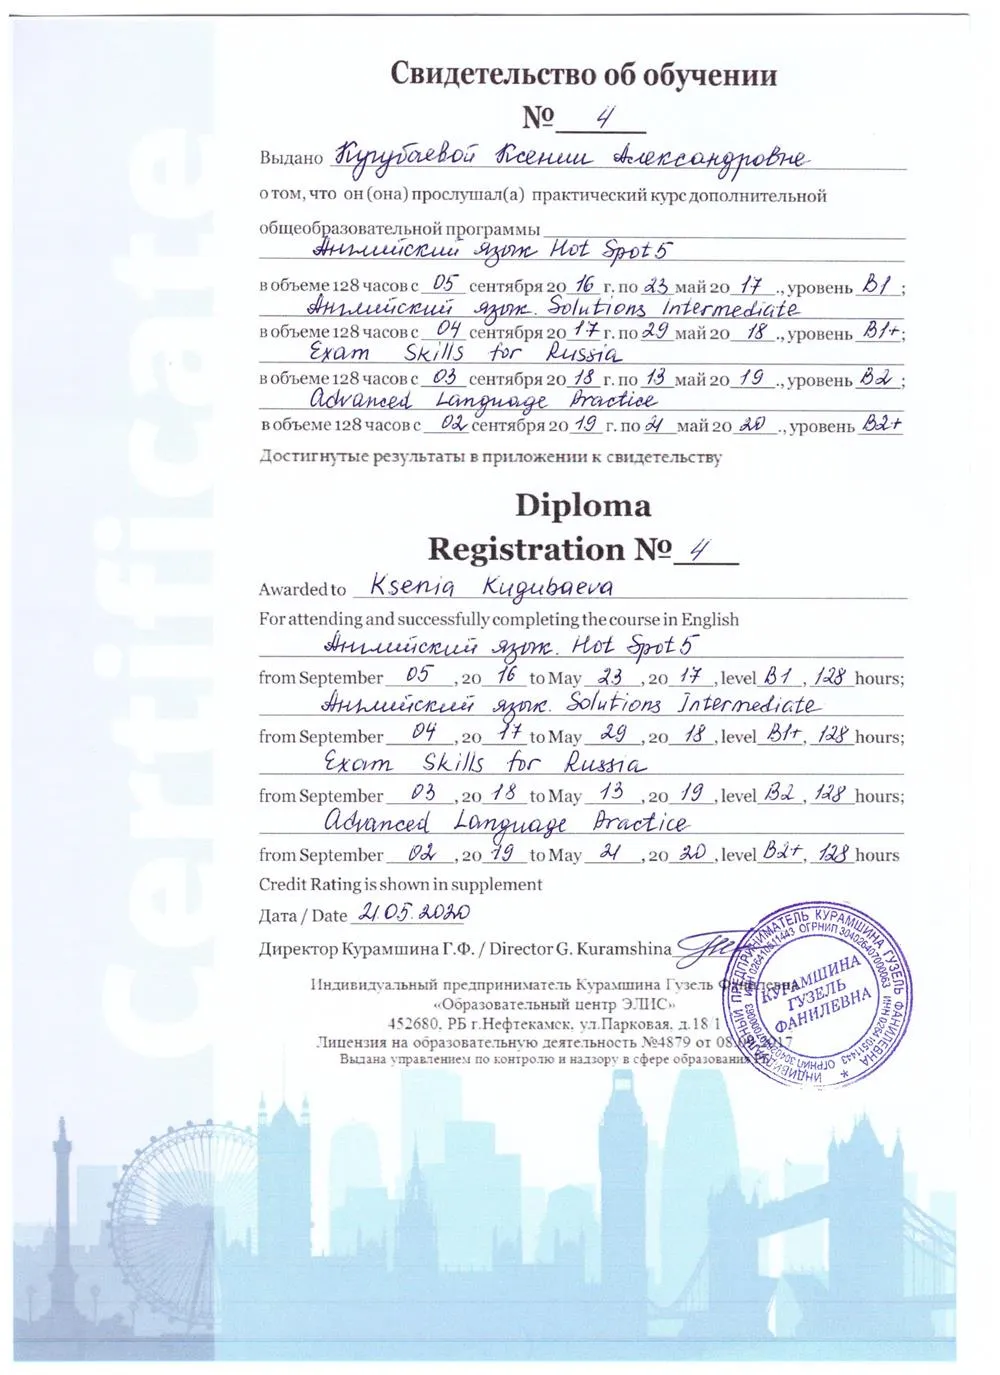 Certificate
Свидетельство об обучении
№ 4
Выдано Кугубаевой Ксении Александровне
о том, что он (она) прослушал(а) практический курс дополнительной
общеобразовательной программы
Английский язык Hot Spot 5
в объеме 128 часов с 05 сентября 20 16 г. по 23 май 20 17 ., уровень B1 ;
Английский язык. Solutions Intermediate
в объеме 128 часов с 04 сентября 20 17 г. по 29 май 20 18 ., уровень B1+;
Exam Skills for Russia
в объеме 128 часов с 03 сентября 20 18 г. по 13 май 20 19 ., уровень B2 ;
Advanced Language Practice
в объеме 128 часов с 02 сентября 20 19 г. по 21 май 20 20 ., уровень B2+
Достигнутые результаты в приложении к свидетельству
Diploma
Registration № 4
Awarded to Ksenia Kugubaeva
For attending and successfully completing the course in English
Английский язык. Hot Spot 5
from September 05 , 20 16 to May 23 , 20 17 , level B1 , 128 hours;
Английский язык. Solutions Intermediate
from September 04 , 20 17 to May 29 , 20 18 , level B1+, 128 hours;
Exam Skills for Russia
from September 03 , 20 18 to May 13 , 20 19 , level B2 , 128 hours;
Advanced Language Practice
from September 02 , 20 19 to May 21 , 20 20 , level B2+, 128 hours
Credit Rating is shown in supplement
Дата / Date 21.05.2020
Директор Курамшина Г.Ф. / Director G. Kuramshina
Индивидуальный предприниматель Курамшина Гузель Фанилевна
«Образовательный центр ЭЛИС»
452680, РБ г.Нефтекамск, ул.Парковая, д.18/1
Лицензия на образовательную деятельность №4879 от 2017
Выдана управлением по контролю и надзору в сфере образования РБ
ИНДИВИДУАЛЬНЫЙ ПРЕДПРИНИМАТЕЛЬ КУРАМШИНА ГУЗЕЛЬ ФАНИЛЕВНА *
ИНН 026410511443 ОГРНИП 304026407000063 ИНН 026410511443 ОГРНИП 304026407000063
КУРАМШИНА
ГУЗЕЛЬ
ФАНИЛЕВНА